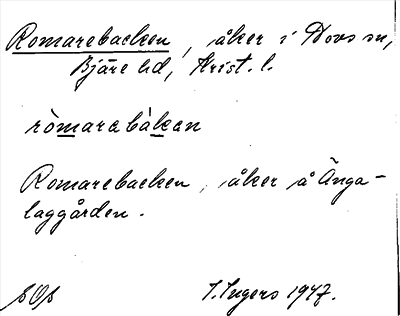 Romarebacken, åker i Hovs sn,
Bjäre hd, Krist. l.
ròmarabàkan
Romarebacken, åker å Änga-
laggården.
SOS
I. Ingers 1947.